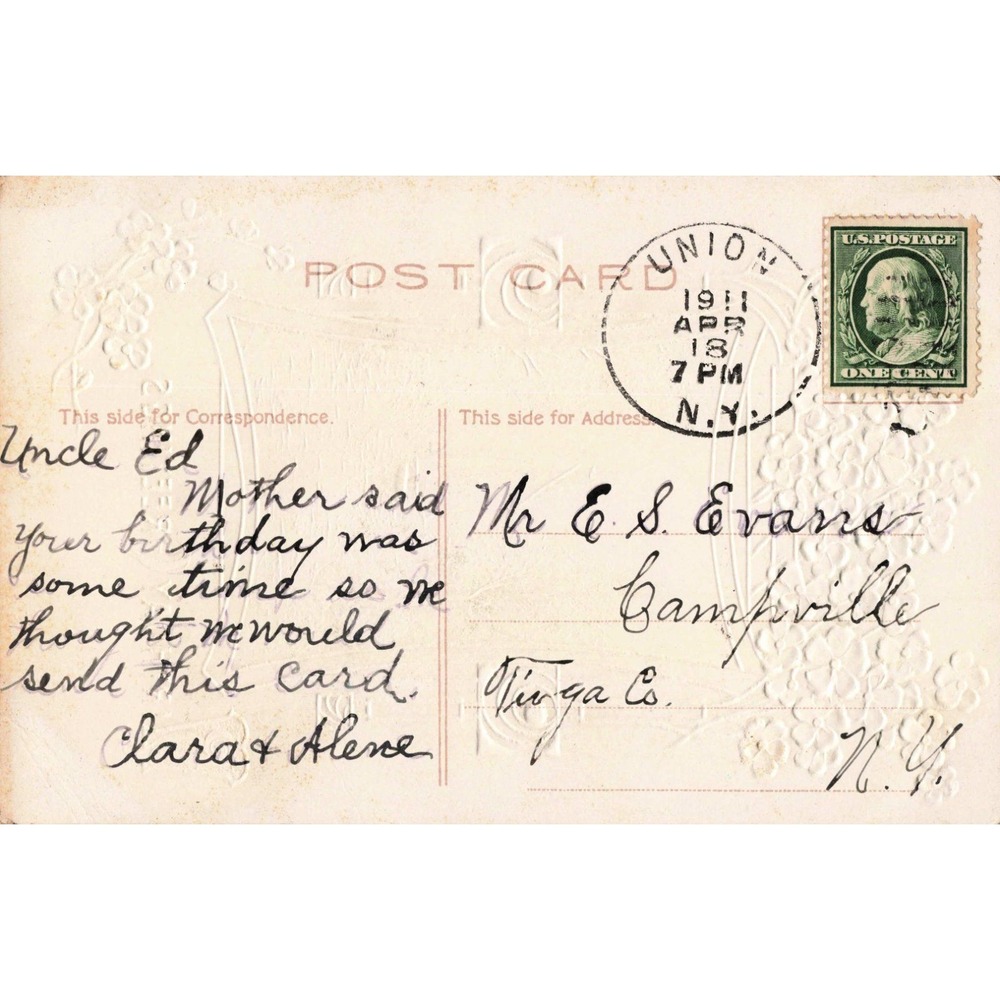 POST CARD
UNION
1911
APR
18
7 PM
N.Y.
U.S. POSTAGE
ONE CENT
This side for Correspondence.
Uncle Ed
Mother said
your birthday was
some time so we
thought we would
send this card.
Clara & Alene
This side for Address.
Mr E. S. Evans
Campville
Tioga Co.
N. Y.